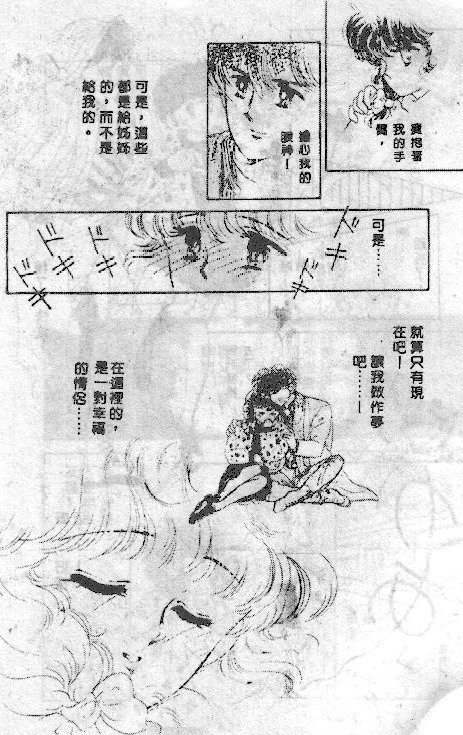 擁抱著
我的手
臂，
擔心我的
眼神—
可是，這些
都是給姊姊
的，而不是
給我的。
可是……
ズキ
ズキ
ズキ
ズキ
ズキ
就算只有現
在吧—
讓我做作夢
吧………—
在這裡的，
是一對幸福
的情侶……